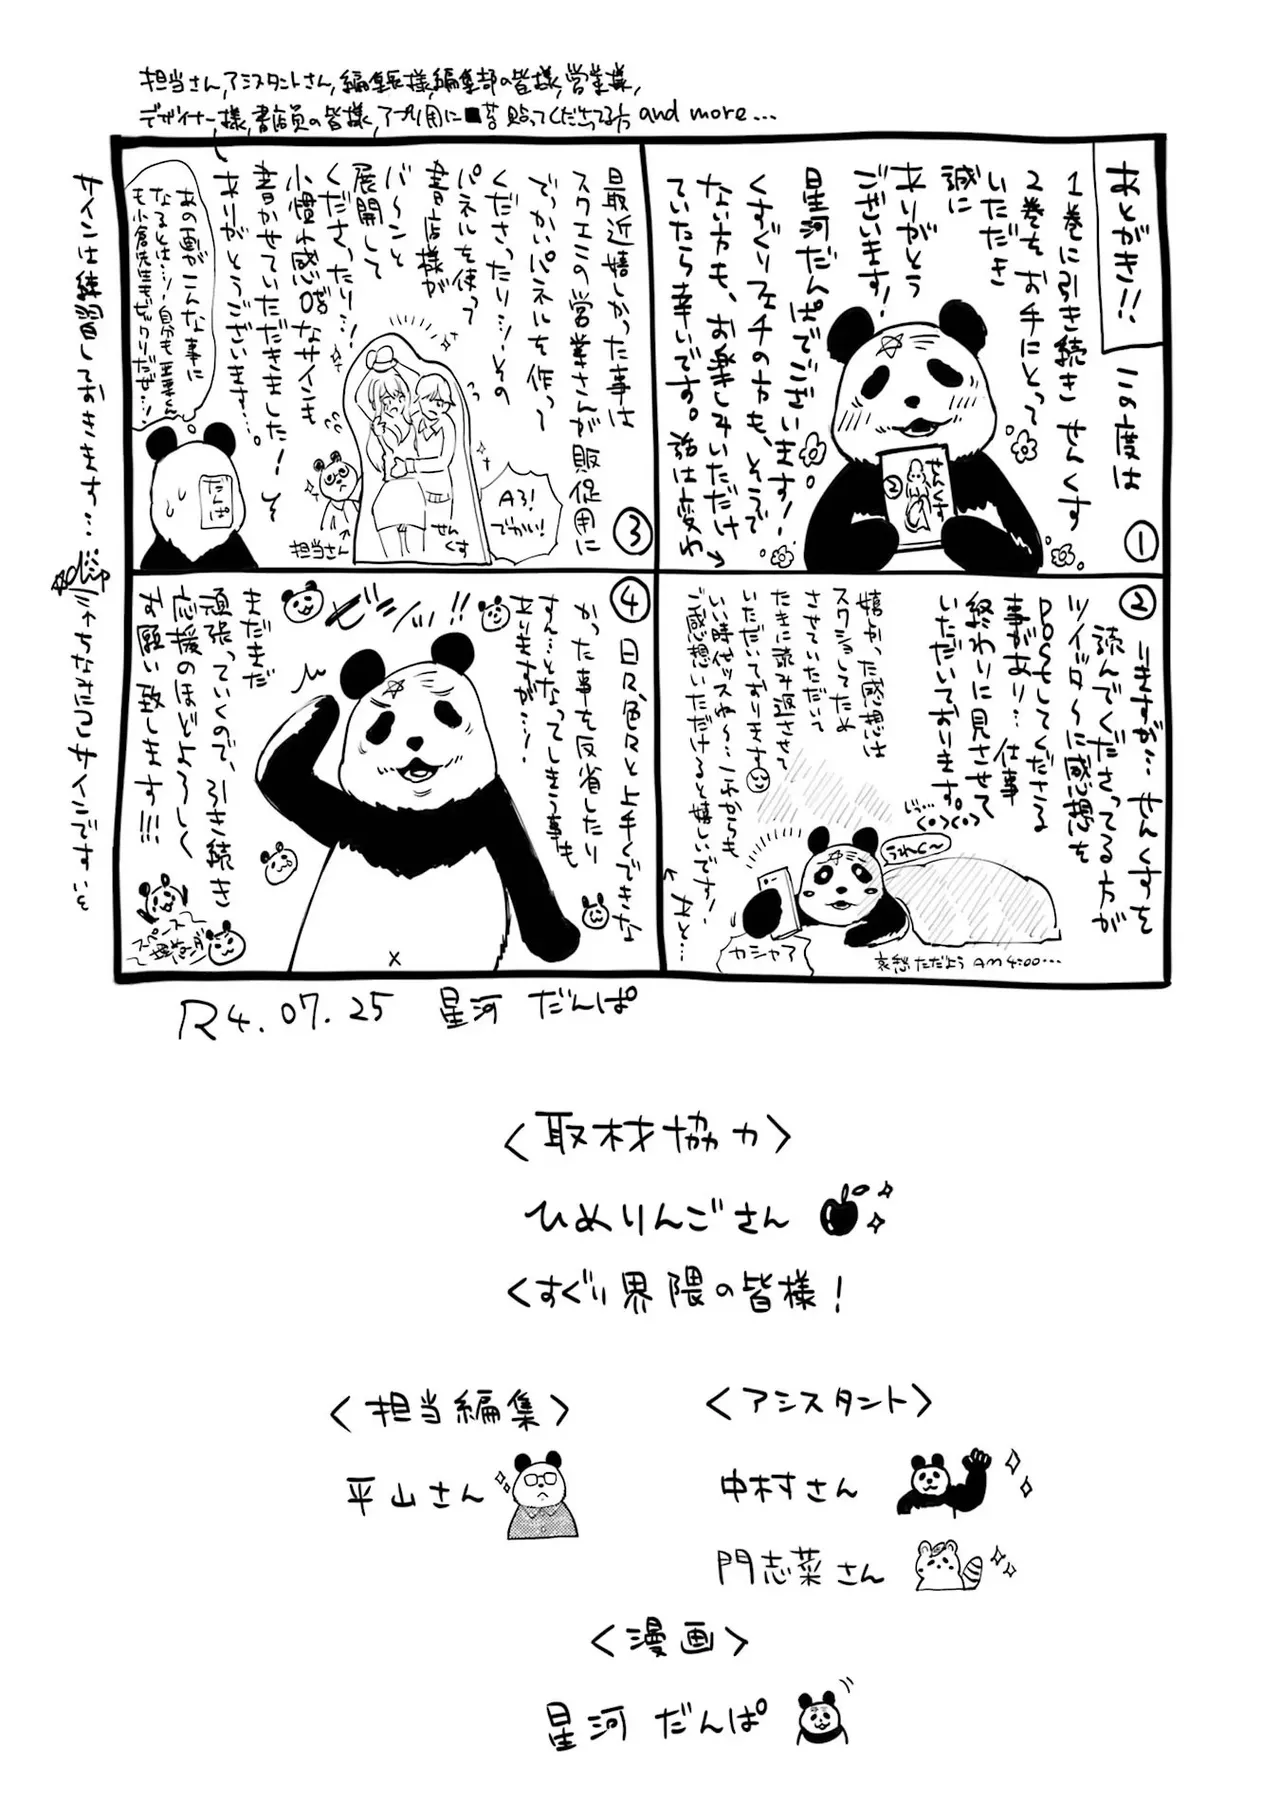 担当さん,アシスタントさん,編集長様,編集部の皆様,営業様,
デザイナー様,書店員の皆様,アプリ用に■苔貼ってくださってる方 and more...
あとがき!!
①
この度は
1巻に引き続き せんくす
2巻をお手にとって
いただき
誠に
ありがとう
ございます!
星河だんぱでございます!
くすぐりフェチの方も、そうで
ない方も、お楽しみいただけ
ていたら幸いです。話は変わ→
せんくす
②
②
りますが… せんくすを
読んでくださってる方が
ツイッタ〜に感想を
POSTしてくださる
事があり… 仕事
終わりに見させて
いただいております。
嬉しかった感想は
スクショしてたね
させていただいて
たまに読み返させて
いただいております
いい時代ッスね〜…これからも
ご感想いただけると嬉しいです!
←あと…
うれし〜
カシャァ
哀愁ただよう AM4:00…
③
最近嬉しかった事は
スクエニの営業さんが販促用に
でっかいパネルを作って
くださったり…!その
パネルを使って
書店様が
バ〜ンと
展開して
くださったり…!
小慣れ感凸なサインも
書かせていただきました!
ありがとうございます…
A3!
でかい!
担当さん
せんくす
だんぱ
あの画がこんな事に
なるとは…!自分も
も小倉先生もビックリだぜ…!
④
日々、色々と上手くできな
かった事を反省したり
すん…となってしまう事も
ありますが…!
ビシッ!!
まだまだ
頑張っていくので、引き続き
応援のほどよろしく
お願い致します!!!
スペース
埋めパンダ
サインは練習しておきます…
ちなみにコレサインです
R4.07.25 星河 だんぱ
<取材協力>
ひめりんごさん
くすぐり界隈の皆様!
<担当編集>
平山さん
<アシスタント>
中村さん
門志菜さん
<漫画>
星河 だんぱ